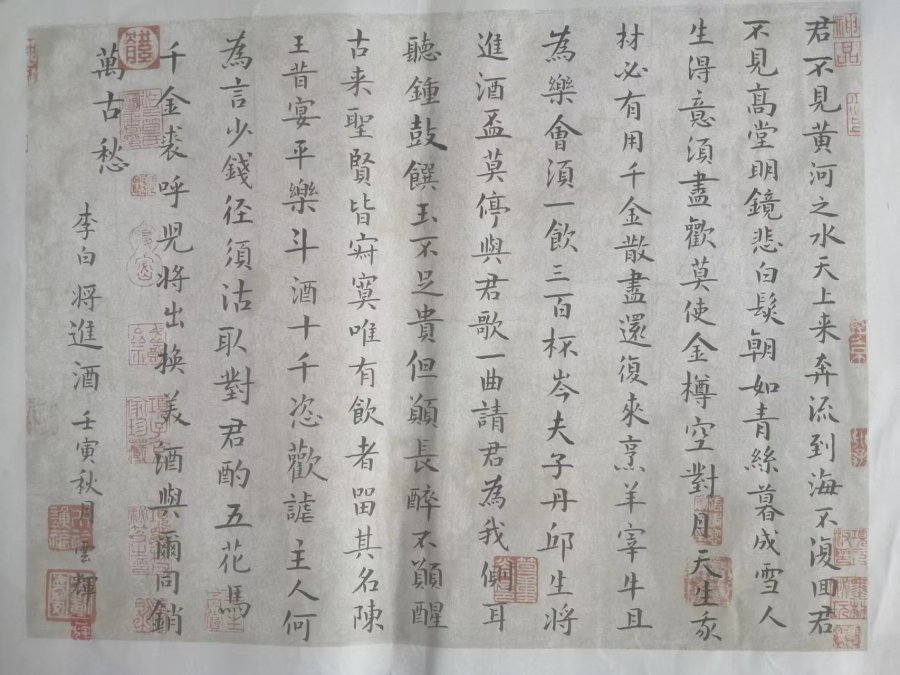 君不見黃河之水天上来奔流到海不復回君
不見高堂明鏡悲白髮朝如青絲暮成雪人
生得意須盡歡莫使金樽空對月天生我
材必有用千金散盡還復來烹羊宰牛且
為樂會須一飲三百杯岑夫子丹邱生將
進酒盃莫停與君歌一曲請君為我傾耳
聽鍾鼓饌玉不足貴但願長醉不願醒
古来聖賢皆寂寞唯有飲者留其名陳
王昔宴平樂斗酒十千恣歡謔主人何
為言少錢径須沽取對君酌五花馬
千金裘呼兒將出換美酒與爾同銷
萬古愁
李白將進酒壬寅秋月雲輝